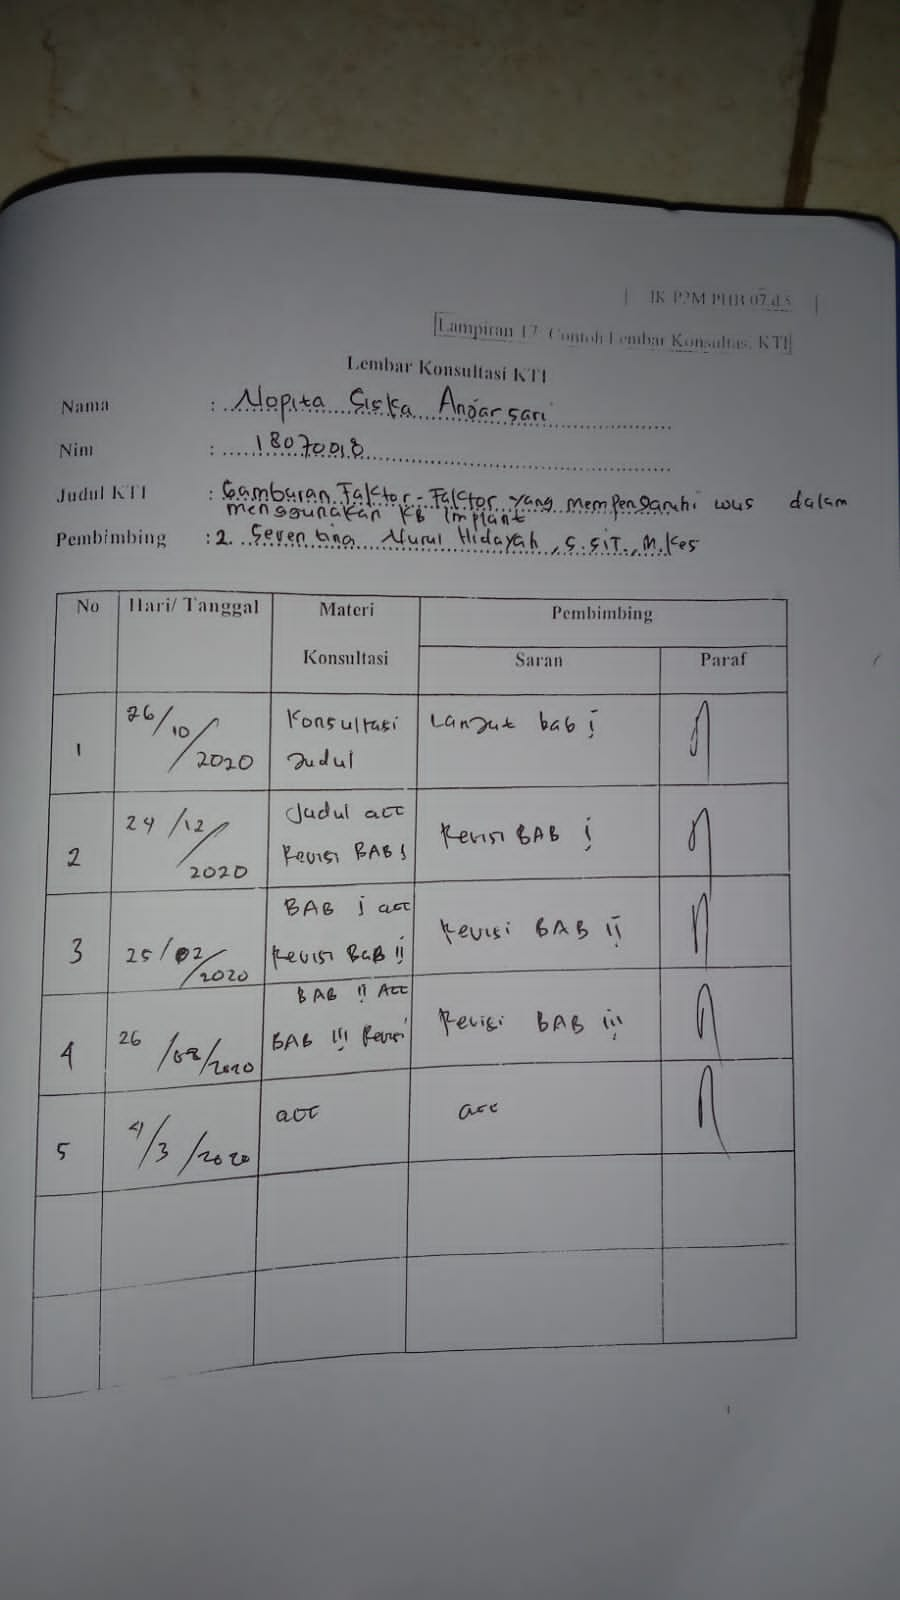 IK P2M PHB 07.d.5
Lampiran 17. Contoh Lembar Konsultas. KTI
Lembar Konsultasi KTI
Nama : Nopita Siska Anjarsari
Nim : 18070018
Judul KTI : Gambaran Faktor-Faktor yang mempengaruhi wus dalam
menggunakan KB Implant
Pembimbing : 2. Seventina Nurul Hidayah, S.SiT., M.Kes
No Hari/ Tanggal Materi Pembimbing
Konsultasi Saran Paraf
1 26/10/2020 Konsultasi Lanjut bab i
Judul
2 24/12/2020 Judul acc Revisi BAB i
Revisi BAB i
3 25/02/2020 BAB i acc Revisi BAB ii
Revisi BaB ii
4 26 /2020 BAB ii Acc Revisi BAB iii
BAB iii Revisi
5 4/3/2020 acc acc